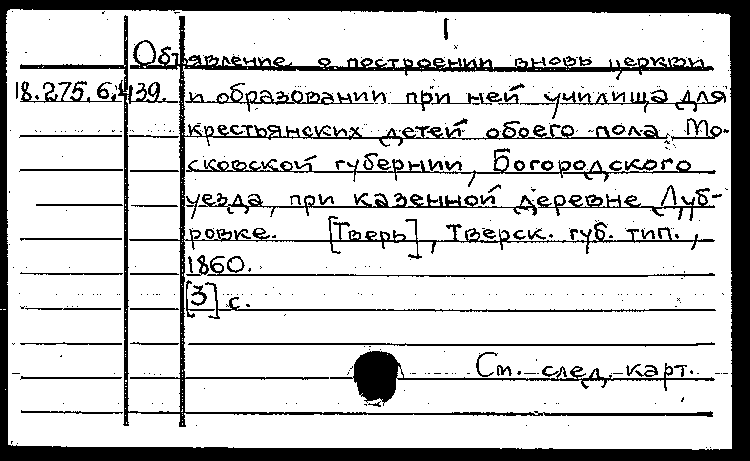 1
Объявление о построении вновь церкви
18.275.6.439. и образовании при ней училища для
крестьянских детей обоего пола, Мо-
сковской губернии, Богородского
уезда, при казенной деревне Дуб-
ровке. [Тверь], Тверск. губ. тип.,
1860.
[3] с.
См. след. карт.